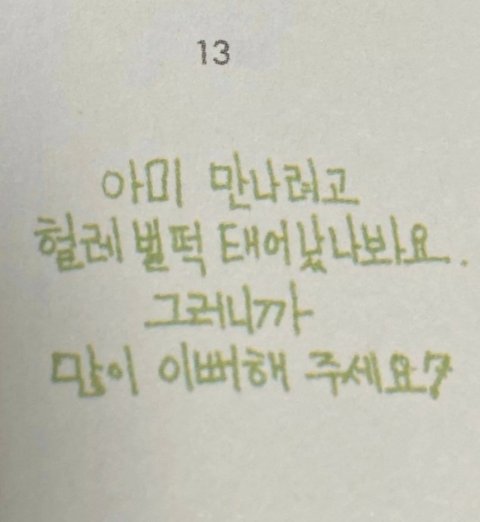 13
아미 만나려고
헐레벌떡 태어났나봐요.
그러니까
많이 이뻐해 주세요7